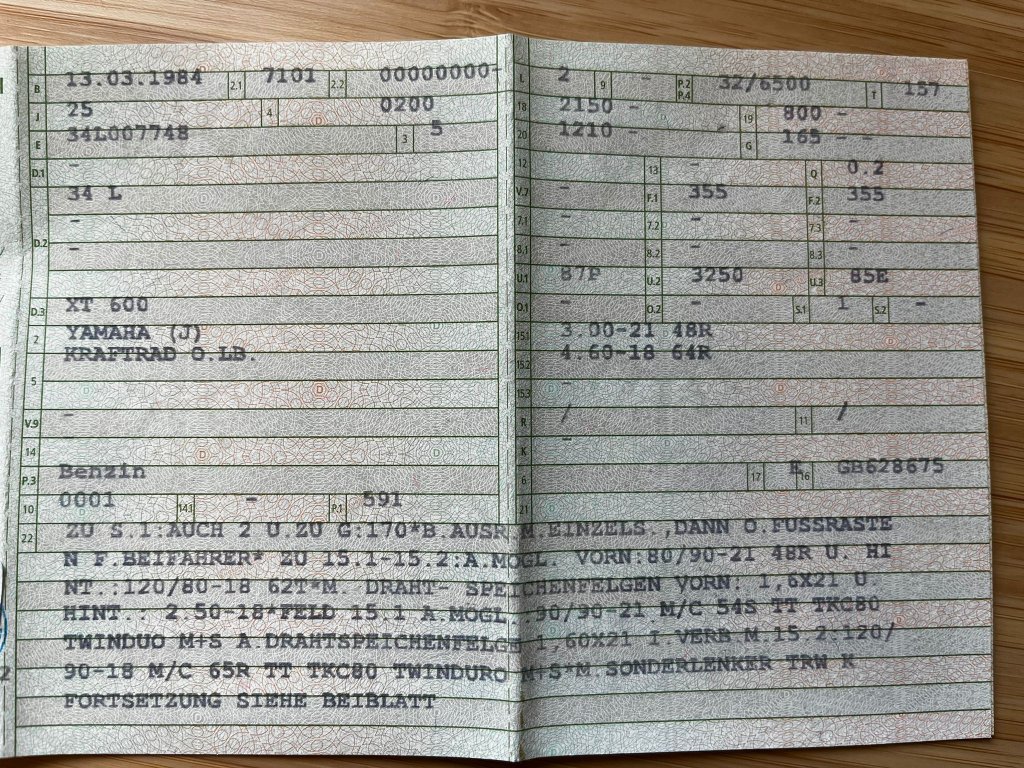 B 13.03.1984 2.1 7101 2.2 00000000-
J 25 4 0200
E 34L007748 3 5
D.1 -
34 L
D.2 -
-
D.3 XT 600
2 YAMAHA (J)
KRAFTRAD O.LB.
5
V.9 -
14
P.3 Benzin
10 0001 14.1 - P.1 591
L 2 9 - P.2 P.4 32/6500 T 157
18 2150 - 19 800 -
20 1210 - - G 165 -
12 13 - Q 0.2
V.7 - F.1 355 F.2 355
7.1 - 7.2 - 7.3 -
8.1 - 8.2 - 8.3 -
U.1 87P U.2 3250 U.3 85E
O.1 - O.2 - S.1 1 S.2 -
15.1 3.00-21 48R
15.2 4.60-18 64R
15.3 -
R / 11 /
K -
6 17 16 GB628675
21
22 ZU S.1:AUCH 2 U.ZU G:170*B.AUSR.M.EINZELS.,DANN O.FUSSRASTE
N F.BEIFAHRER* ZU 15.1-15.2:A.MOGL. VORN:80/90-21 48R U. HI
NT.:120/80-18 62T*M. DRAHT- SPEICHENFELGEN VORN: 1,6X21 U.
HINT.: 2.50-18*FELD 15.1 A.MOGL.:90/90-21 M/C 54S TT TKC80
TWINDUO M+S A.DRAHTSPEICHENFELGE 1,60X21 I.VERB.M.15.2:120/
90-18 M/C 65R TT TKC80 TWINDURO M+S*M.SONDERLENKER TRW K
FORTSETZUNG SIEHE BEIBLATT